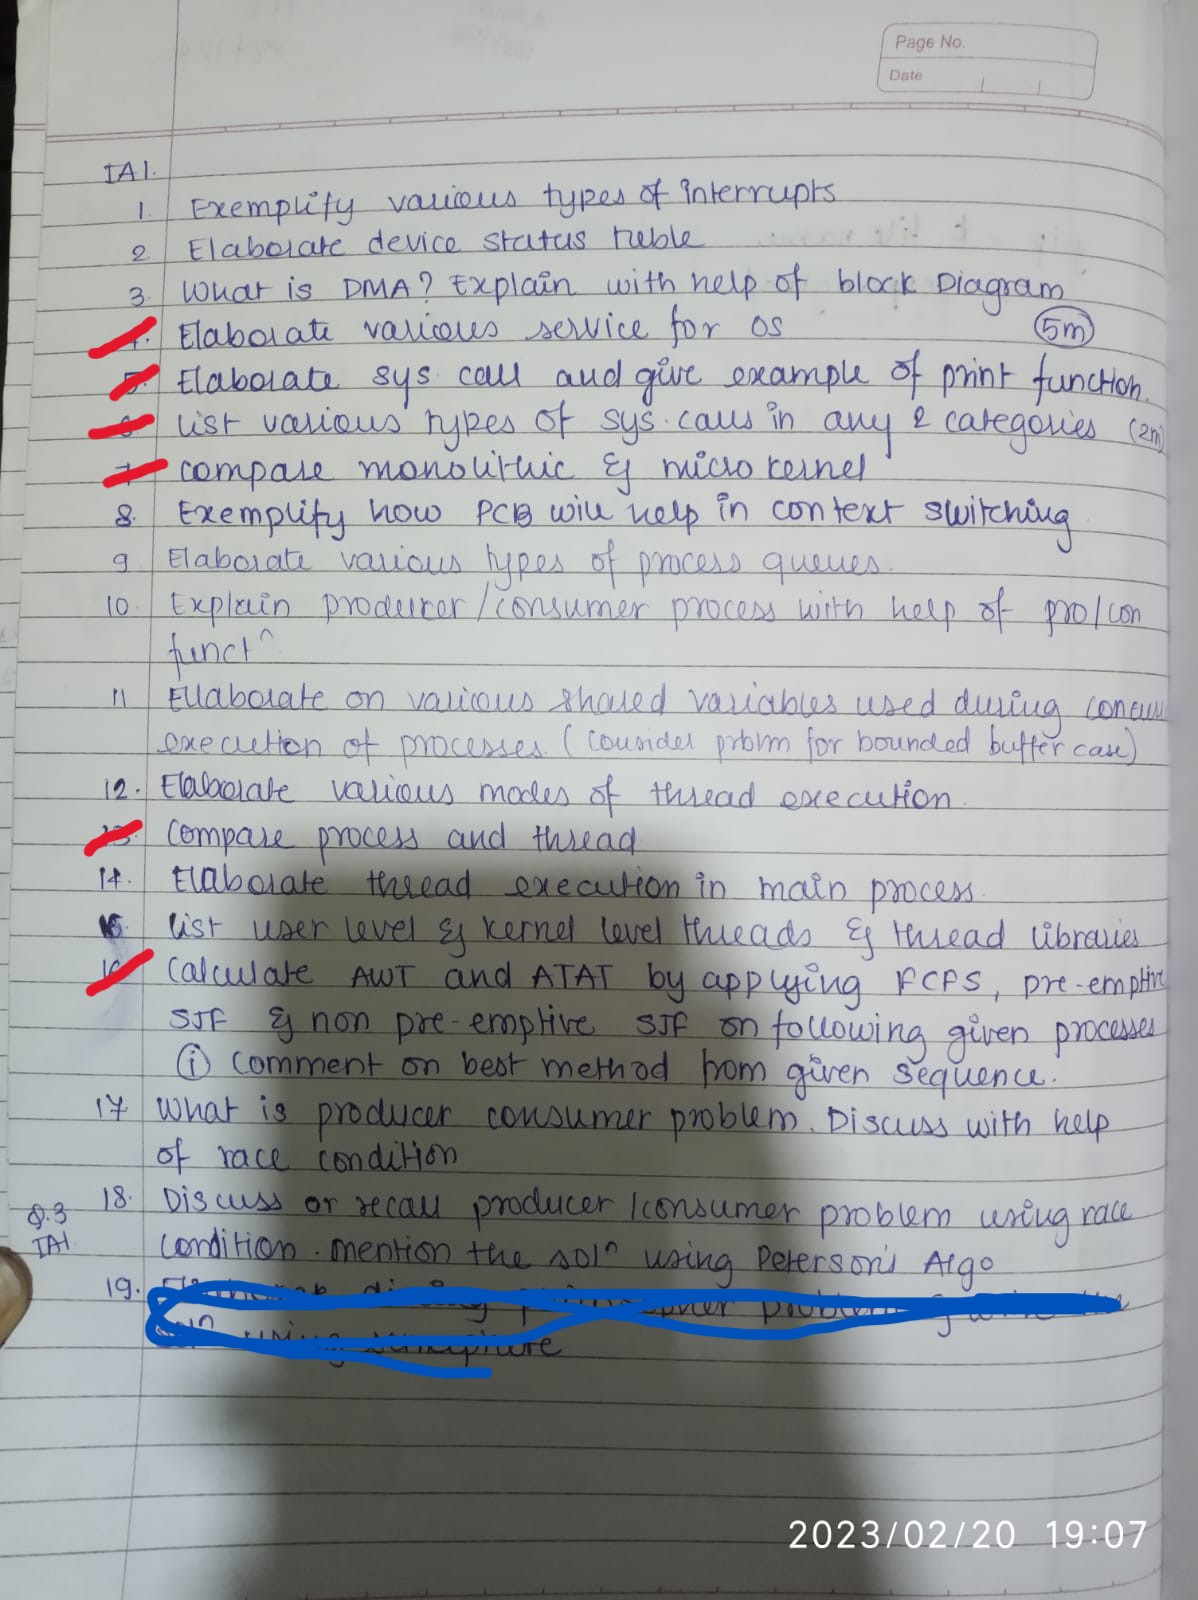 Page No.
Date
IA1.
1. Exemplify various types of interrupts
2 Elaborate device status table
3. What is DMA? Explain with help of block Diagram
4. Elaborate various service for OS (5m)
5. Elaborate sys. call and give example of print function.
6 List various types of sys. calls in any 2 categories (2m)
7 compare monolithic & micro kernel
8. Exemplify how PCB will help in context switching
9 Elaborate various types of process queues.
10. Explain producer/consumer process with help of pro/con
funct^n
11 Ellaborate on various shared variables used during concu
execution of processes. (consider prblm for bounded buffer case)
12. Elaborate various modes of thread execution.
13. compare process and thread
14. Elaborate thread execution in main process.
15. List user level & kernel level threads & thread libraries
16 Calculate AWT and ATAT by applying FCFS, pre-emptive
SJF & non pre-emptive SJF on following given processes
(i) comment on best method from given sequence.
17 What is producer consumer problem. Discuss with help
of race condition
18. Discuss or recall producer/consumer problem using race
Q.3
IA1. condition. mention the sol^n using Peterson's Algo
19. problem
sol^n using semaphore
2023/02/20 19:07